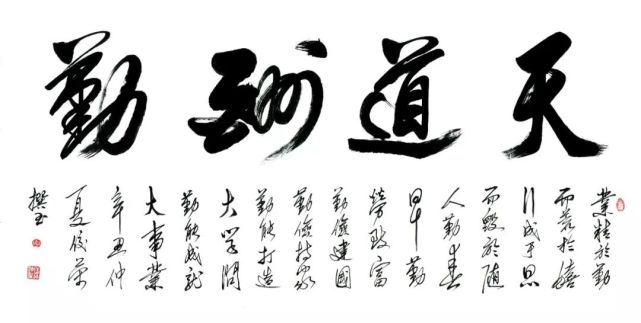 天道酬勤
業精於勤
而荒於嬉
行成于思
而毁於随
人勤春
早勤
勞致富
勤儉建國
勤儉持家
勤能打造
大学問
勤能成就
大事業
辛丑仲
夏
撰